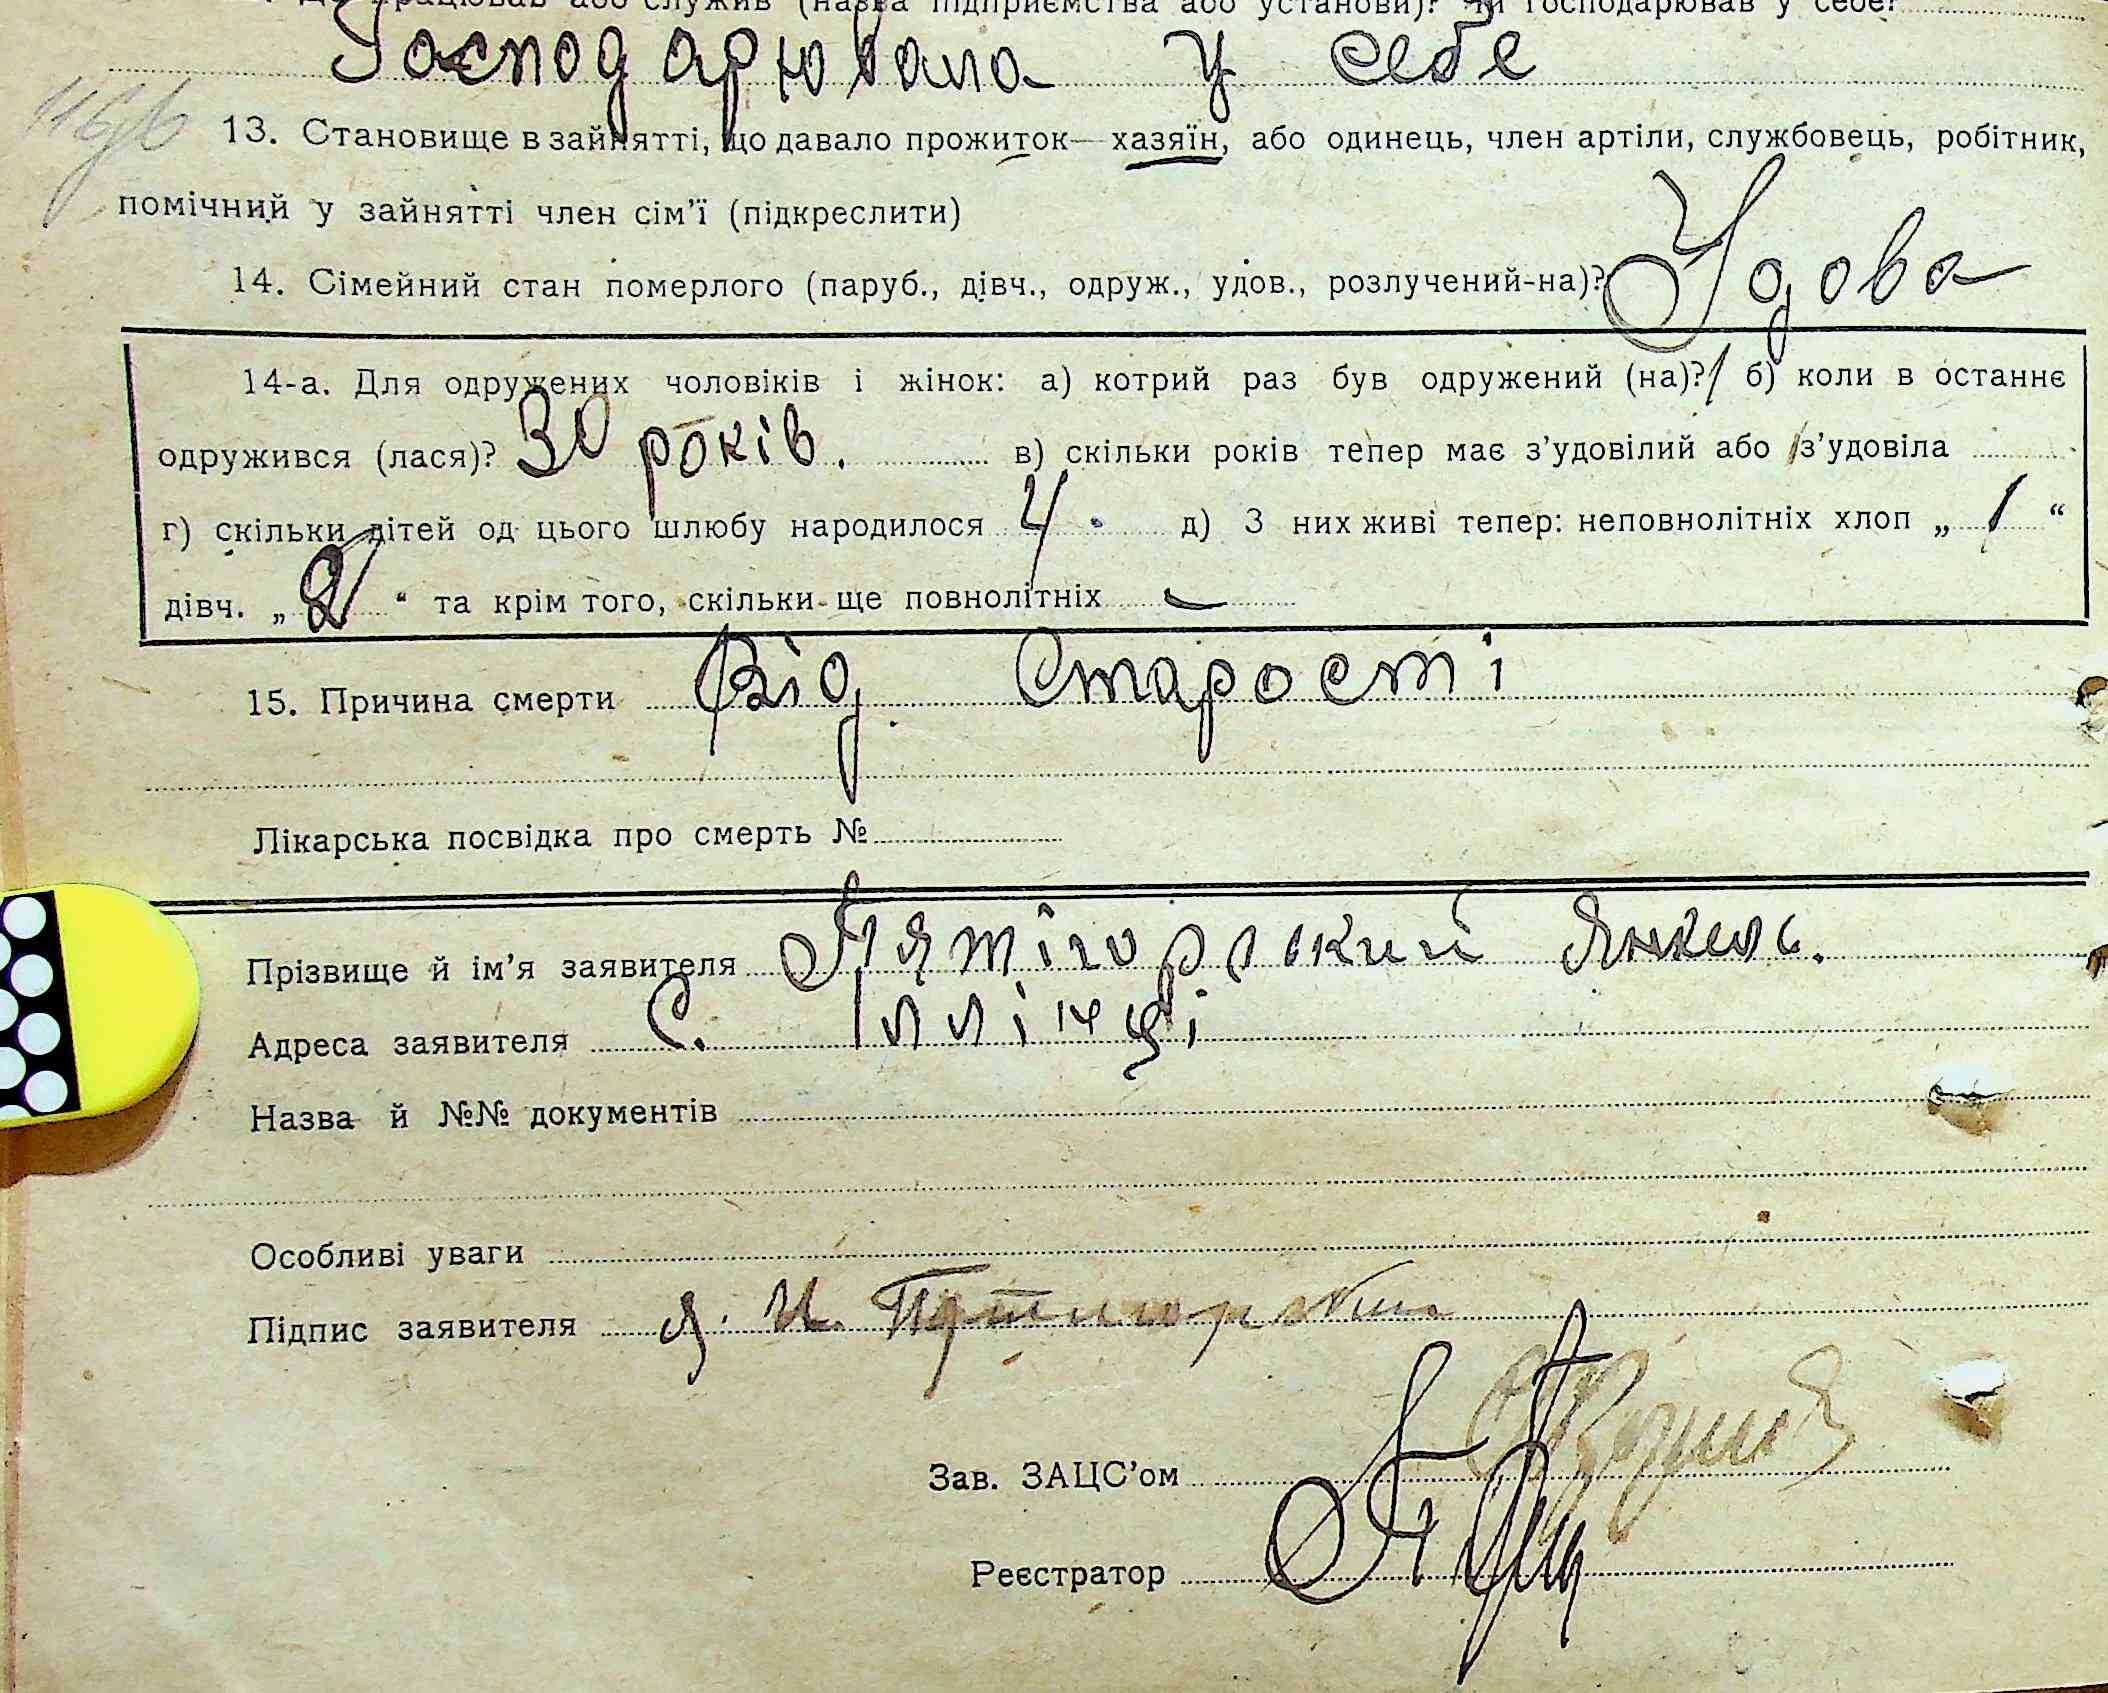 працював або служив (назва підприємства або установи)? Чи господарював у себе?
Господарювала у себе
13. Становище в зайнятті, що давало прожиток—хазяїн, або одинець, член артіли, службовець, робітник,
помічний у зайнятті член сім’ї (підкреслити)
14. Сімейний стан померлого (паруб., дівч., одруж., удов., розлучений-на)? Удова
14-а. Для одружених чоловіків і жінок: а) котрий раз був одружений (на)? 1 б) коли в останнє
одружився (лася)? 30 років. в) скільки років тепер має з’удовілий або з’удовіла
г) скільки дітей од цього шлюбу народилося 4 д) З них живі тепер: неповнолітніх хлоп „ 1 “
дівч. „ 2 “ та крім того, скільки ще повнолітніх —
15. Причина смерти Від Старости
Лікарська посвідка про смерть №
Прізвище й ім’я заявителя Пятігорський Янкель.
Адреса заявителя С. Іллінці
Назва й №№ документів
Особливі уваги
Підпис заявителя Я. И. Пятигорский
Зав. ЗАЦС’ом
Реєстратор